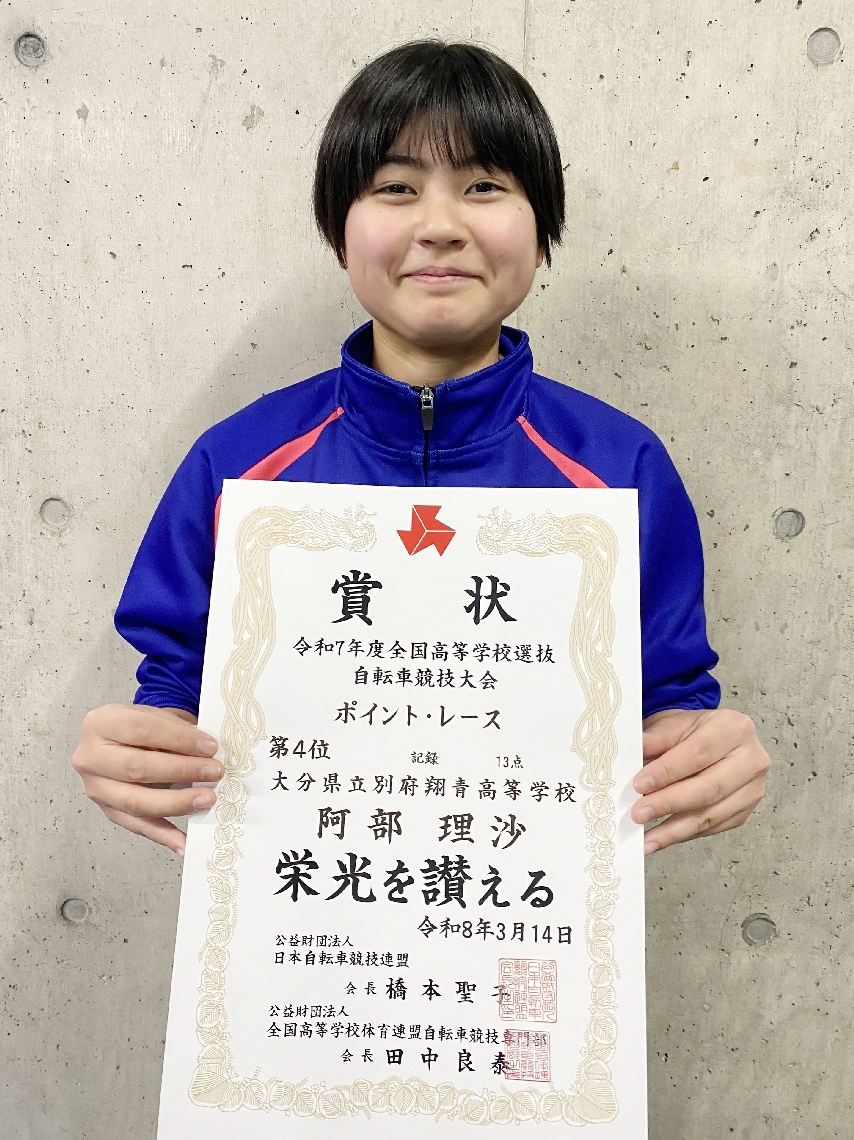 賞 状
令和7年度全国高等学校選抜
自転車競技大会
ポイント・レース
第4位 記録 13点
大分県立別府翔青高等学校
阿部 理沙
栄光を讃える
令和8年3月14日
公益財団法人
日本自転車競技連盟
会長 橋本聖子
公益財団法人
全国高等学校体育連盟自転車競技専門部
会長 田中良泰